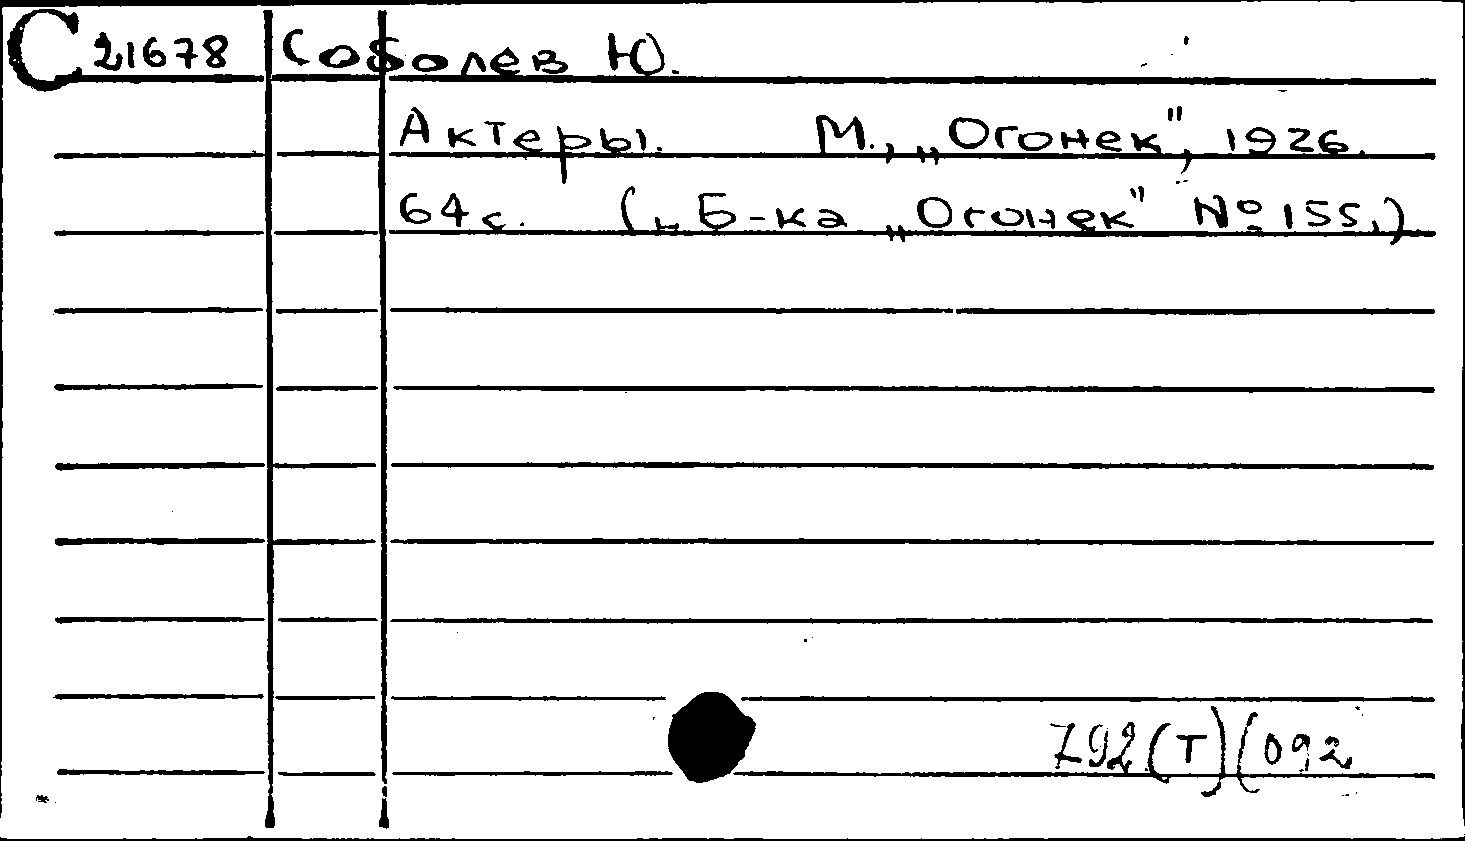 С 21678 Соболев Ю.
Актеры. М., „Огонек", 1926.
64 с. („Б-ка „Огонек" № 155.)
792(Т)(092